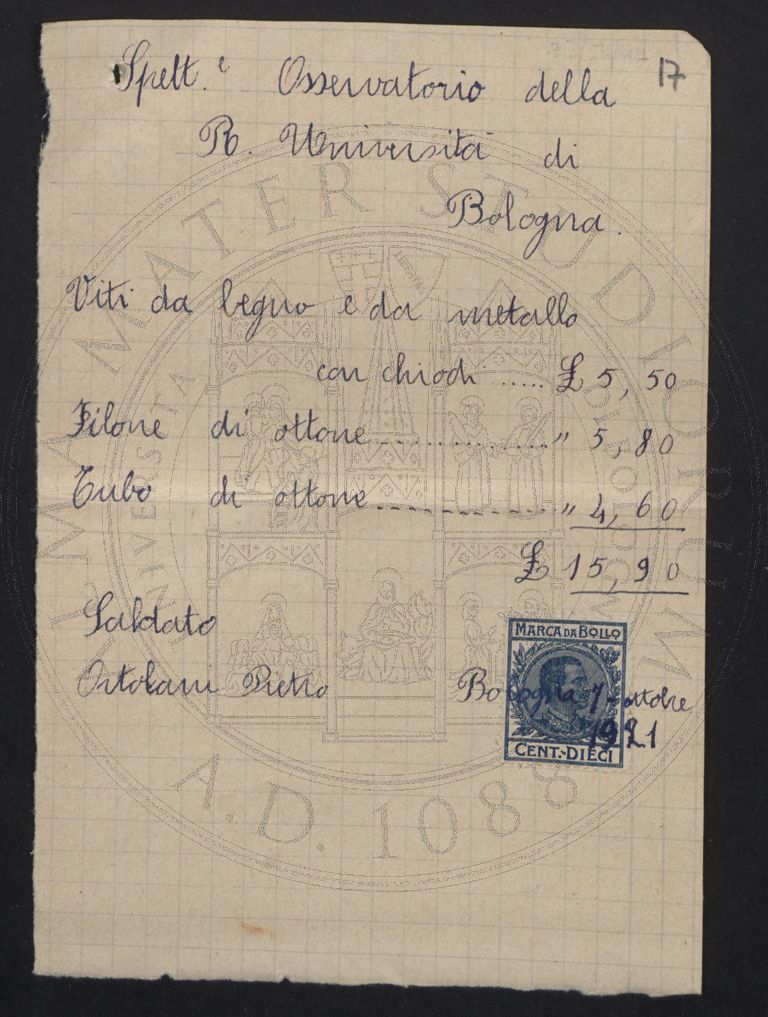 17
Spett.e Osservatorio della
R. Università di
Bologna.
Viti da legno e da metallo
con chiodi ..... £ 5,50
Filone di ottone.............." 5,80
Tubo di ottone--------------" 4,60
£ 15,90
Saldato
Ortolani Pietro
Bologna 7-ottobre
1921
MARCA DA BOLLO
CENT. DIECI
ALMA MATER STUDIORUM
A.D. 1088